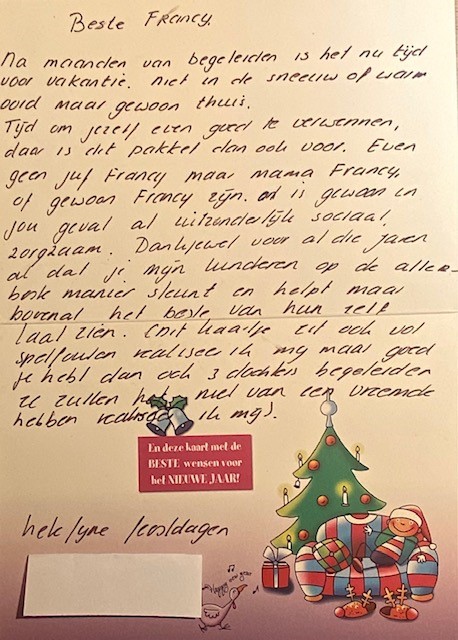 Beste Francy.
Na maanden van begeleiden is het nu tijd
voor vakantie. niet in de sneeuw of warm
oord maar gewoon thuis.
Tijd om jezelf even goed te verwennen,
daar is dit pakket dan ook voor. Even
geen juf Francy maar mama Francy,
of gewoon Francy zijn. is gewoon in
jou geval al uitzonderlijk sociaal,
zorgzaam. Dankjewel voor al die jaren
al dat je mijn kinderen op de aller-
beste manier steunt en helpt maar
bovenal het beste van hun zelf
laat zien. (Dit kaartje zit ook vol
spelfouten realiseer ik mij maar goed
je hebt dan ook 3 dochters begeleiden
ze zullen het niet van een vreemde
hebben realiseer ik mij).
En deze kaart met de
BESTE wensen voor
het NIEUWE JAAR!
hele fijne feestdagen
Happy new year